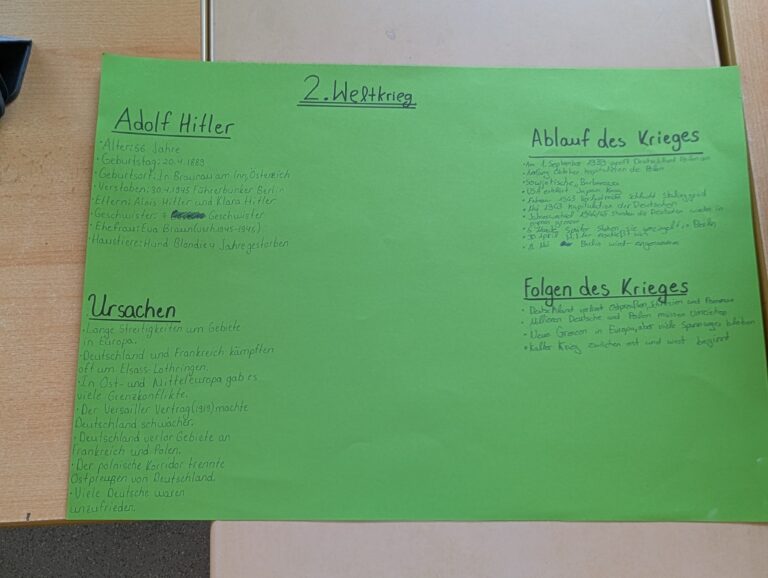 2. Weltkrieg
Adolf Hitler
• Alter: 56 Jahre
• Geburtstag: 20.4.1889
• Geburtsort: In Braunau am Inn, Österreich
• Verstorben: 30.4.1945 Führerbunker Berlin
• Eltern: Alois Hitler und Klara Hitler
• Geschwister: Geschwister
• Ehefrau: Eva Braun
• Haustiere: Hund Blondie 4 Jahre gestorben
Ursachen
• Lange Streitigkeiten um Gebiete
in Europa.
• Deutschland und Frankreich kämpften
oft um Elsass-Lothringen.
• In Ost- und Mitteleuropa gab es
viele Grenzkonflikte.
• Der Versailler Vertrag (1919) machte
Deutschland schwächer.
• Deutschland verlor Gebiete an
Frankreich und Polen.
• Der polnische Korridor trennte
Ostpreußen von Deutschland.
• Viele Deutsche waren
unzufrieden.
Ablauf des Krieges
• Am 1. September 1939 greift Deutschland Polen an
• Anfang Oktober kapitulieren die Polen
• USA erklärt Japan Krieg
• Februar 1943 Schlacht Stalingrad
• Mai 1943 Kapitulation der Deutschen
• Jahreswechsel 1944/45 die Deutschen wieder in
• 6 später stehen sie in Berlin
• 30 April
• 8 Mai Berlin wird
Folgen des Krieges
• Deutschland verliert Ostpreußen, Schlesien und Pommern
• Millionen Deutsche und Polen müssen umziehen
• Neue Grenzen in Europa, aber viele Spannungen bleiben
• Kalter Krieg zwischen ost und west beginnt